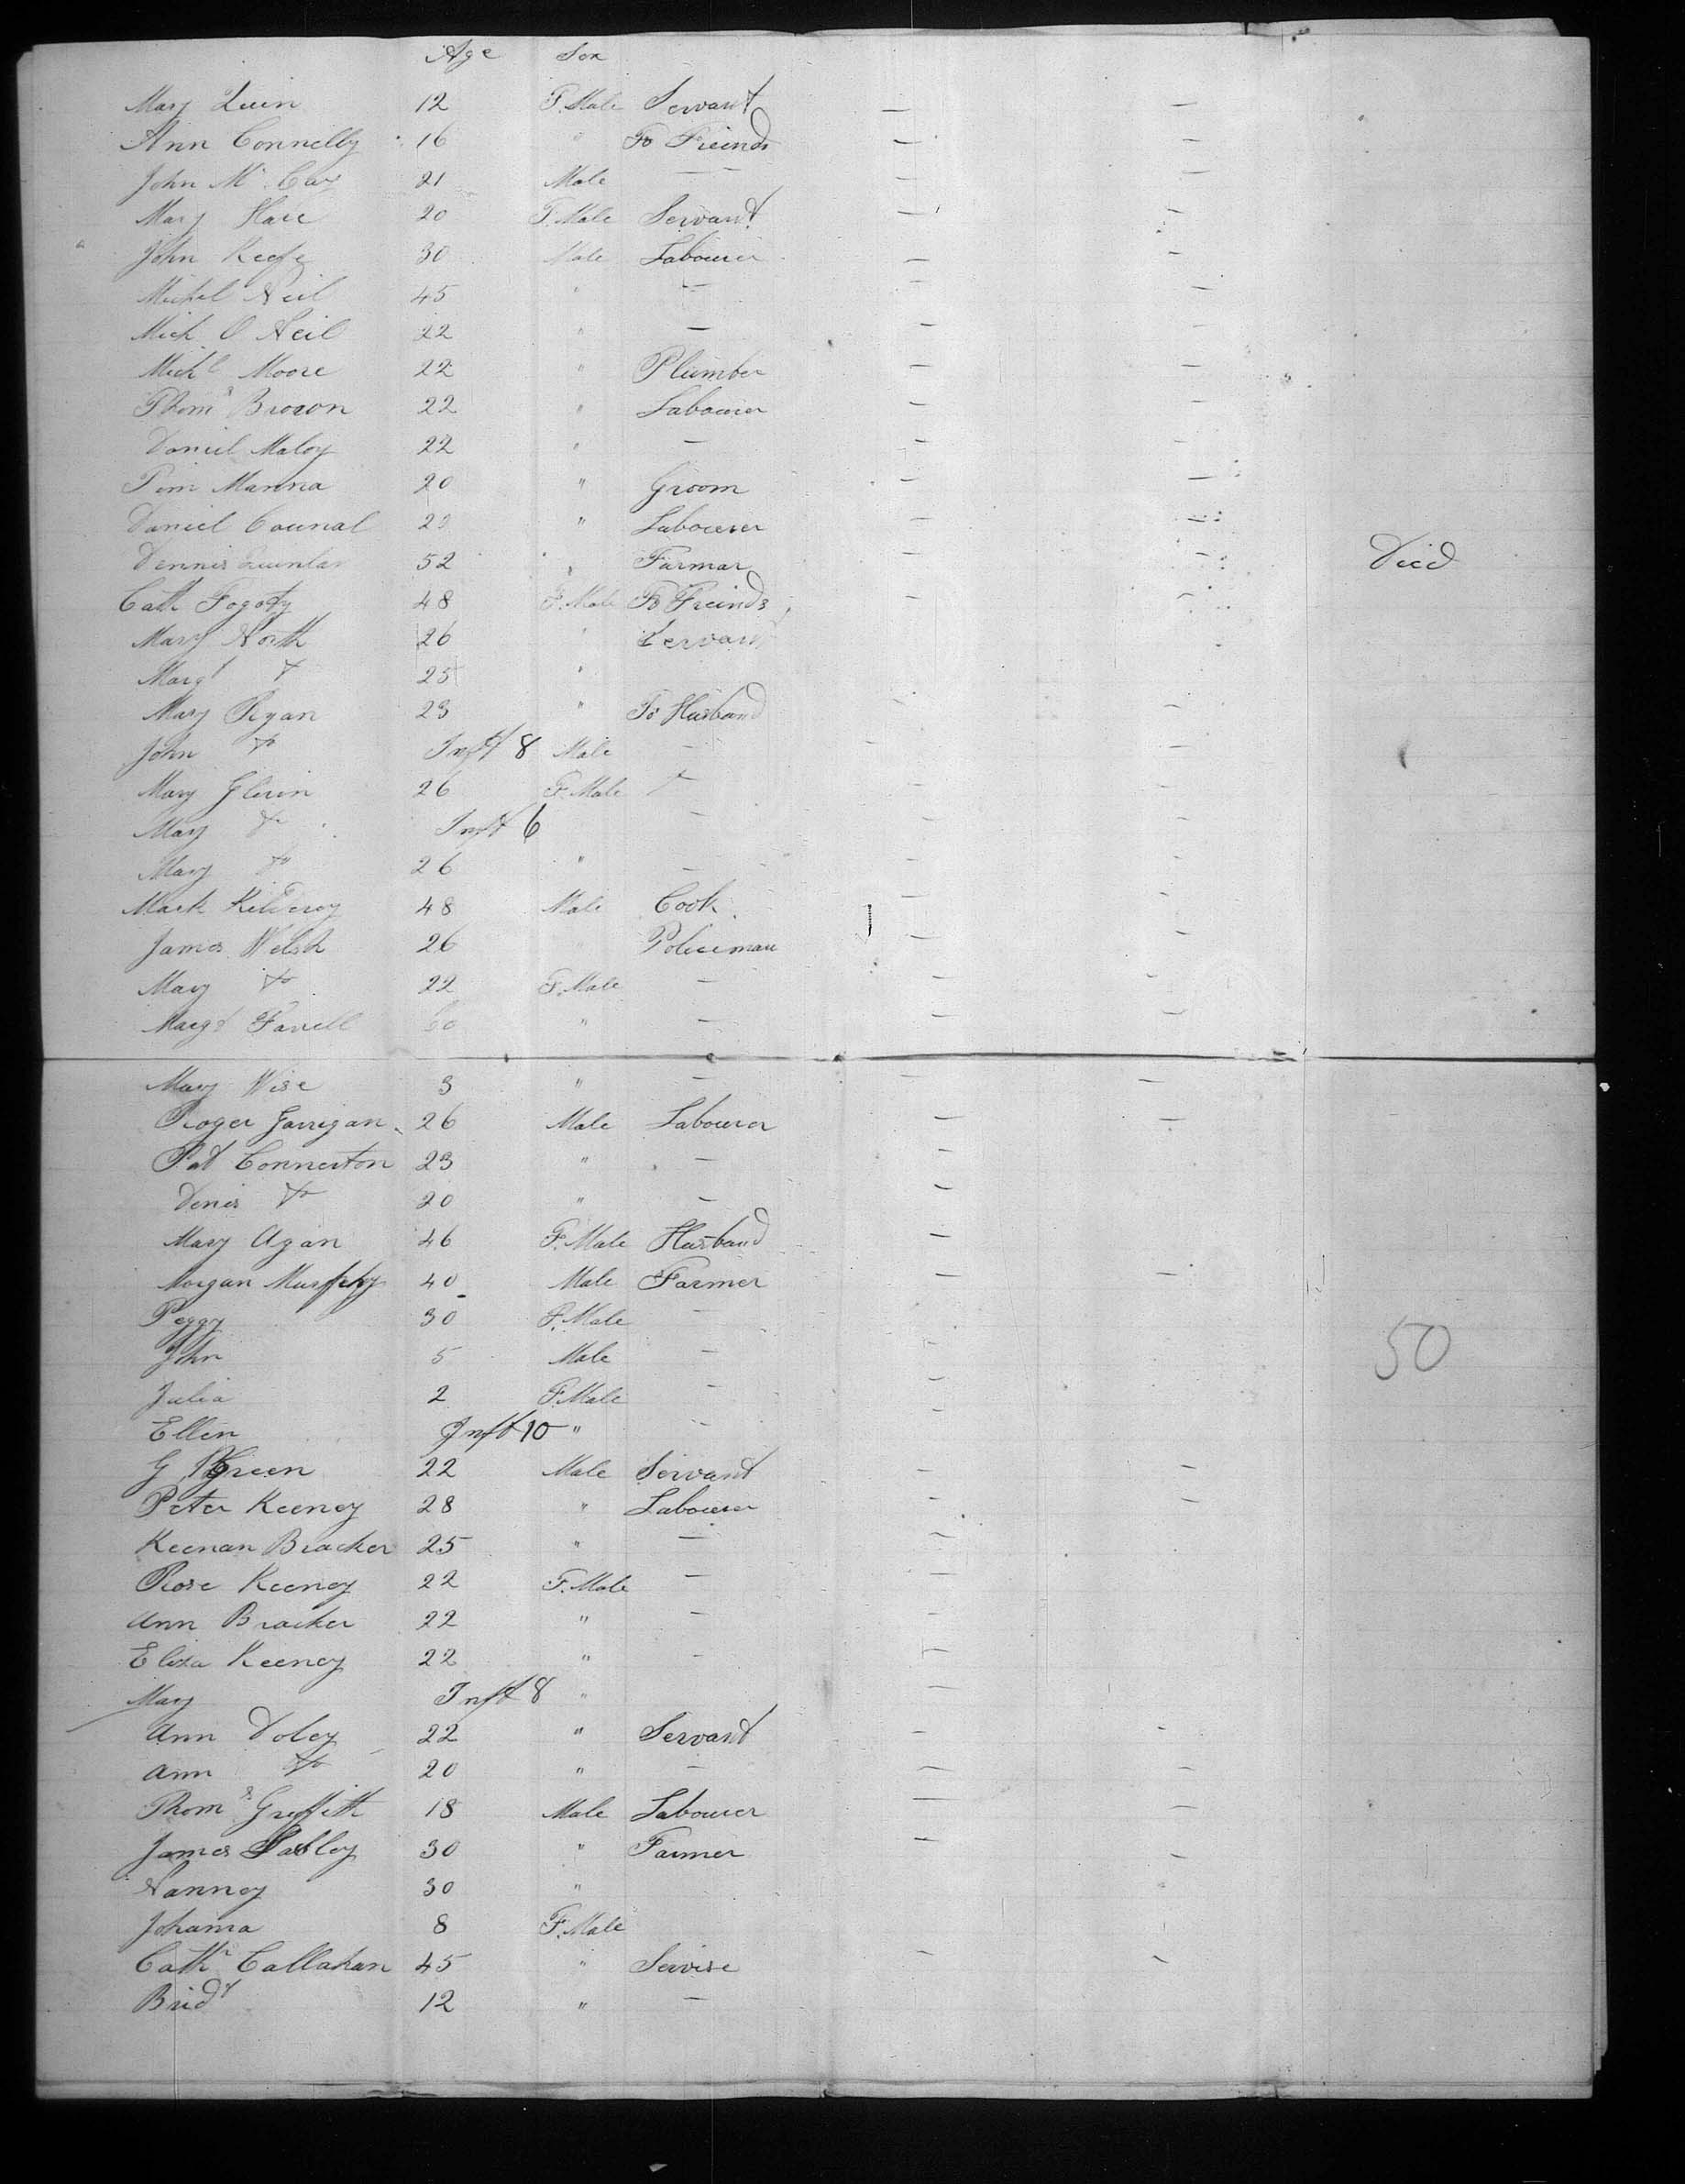 Age Sex
Mary Quin 12 F.Male Servant — —
Ann Connelly 16 " To Freinds — —
John Mc Cay 21 Male — — — —
Mary Hare 20 F.Male Servant — —
John Keefe 30 Male Labourer — —
Michel Neil 45 " — — —
Mich O Neil 22 " — — —
Michl Moore 22 " Plumber — —
Thoms Brown 22 " Labourer — —
Daniel Maloy 22 " — — —
Tim Manna 20 " Groom — —
Daniel Counal 23 " Labourer — —
Dennis Quinlan 52 " Farmar — — Died
Cath Fogoty 48 F.Male To Freinds — —
Mary North 26 " Servant
Margt Do 25 "
Mary Ryan 23 " To Husband — —
John Do Inft 8 Male — — —
Mary Glerin 26 F.Male — — —
Mary Do Inft 6 — — —
Mary Do 26 " — — —
Mark Kilderoy 48 Male Cook — —
James Welsh 26 Policeman — —
Mary Do 22 F.Male — — —
Margt Farrell 60 " — — —
Mary Wise 3 " — — —
Roger Garrigan 26 Male Labourer — —
Pat Connerton 23 " — —
Denis Do 20 " — —
Mary Agan 46 F.Male Husband —
Morgan Murphy 40 Male Farmer — —
Peggy 30 F.Male — —
John 5 Male — — 50
Julia 2 F.Male — —
Ellen Inft 10 " — —
G Green 22 Male Servant — —
Peter Keeney 28 " Labourer — —
Keenan Bracker 25 " — —
Rose Keeney 22 F.Male — —
Ann Bracker 22 " — —
Eliza Keeney 22 " — —
Mary Inft 8 " —
Ann Doley 22 " Servant — —
Ann Do 20 " — — —
Thoms Griffith 18 Male Labourer — —
James 30 " Farmer — —
Nanney 30 "
Johanna 8 F.Male
Cathn Callahan 45 " Servise — —
Bridt 12 " —